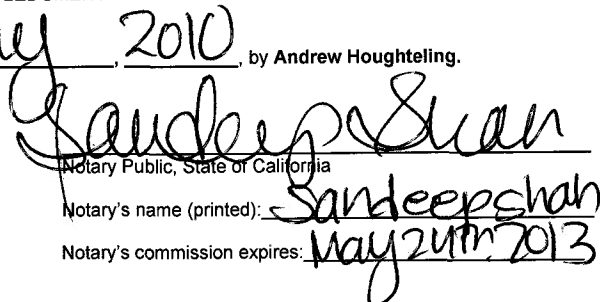 , 2010, by Andrew Houghteling.
Sandeep Shah
Notary Public, State of California
Notary's name (printed): Sandeep shah
Notary's commission expires: May 24th 2013